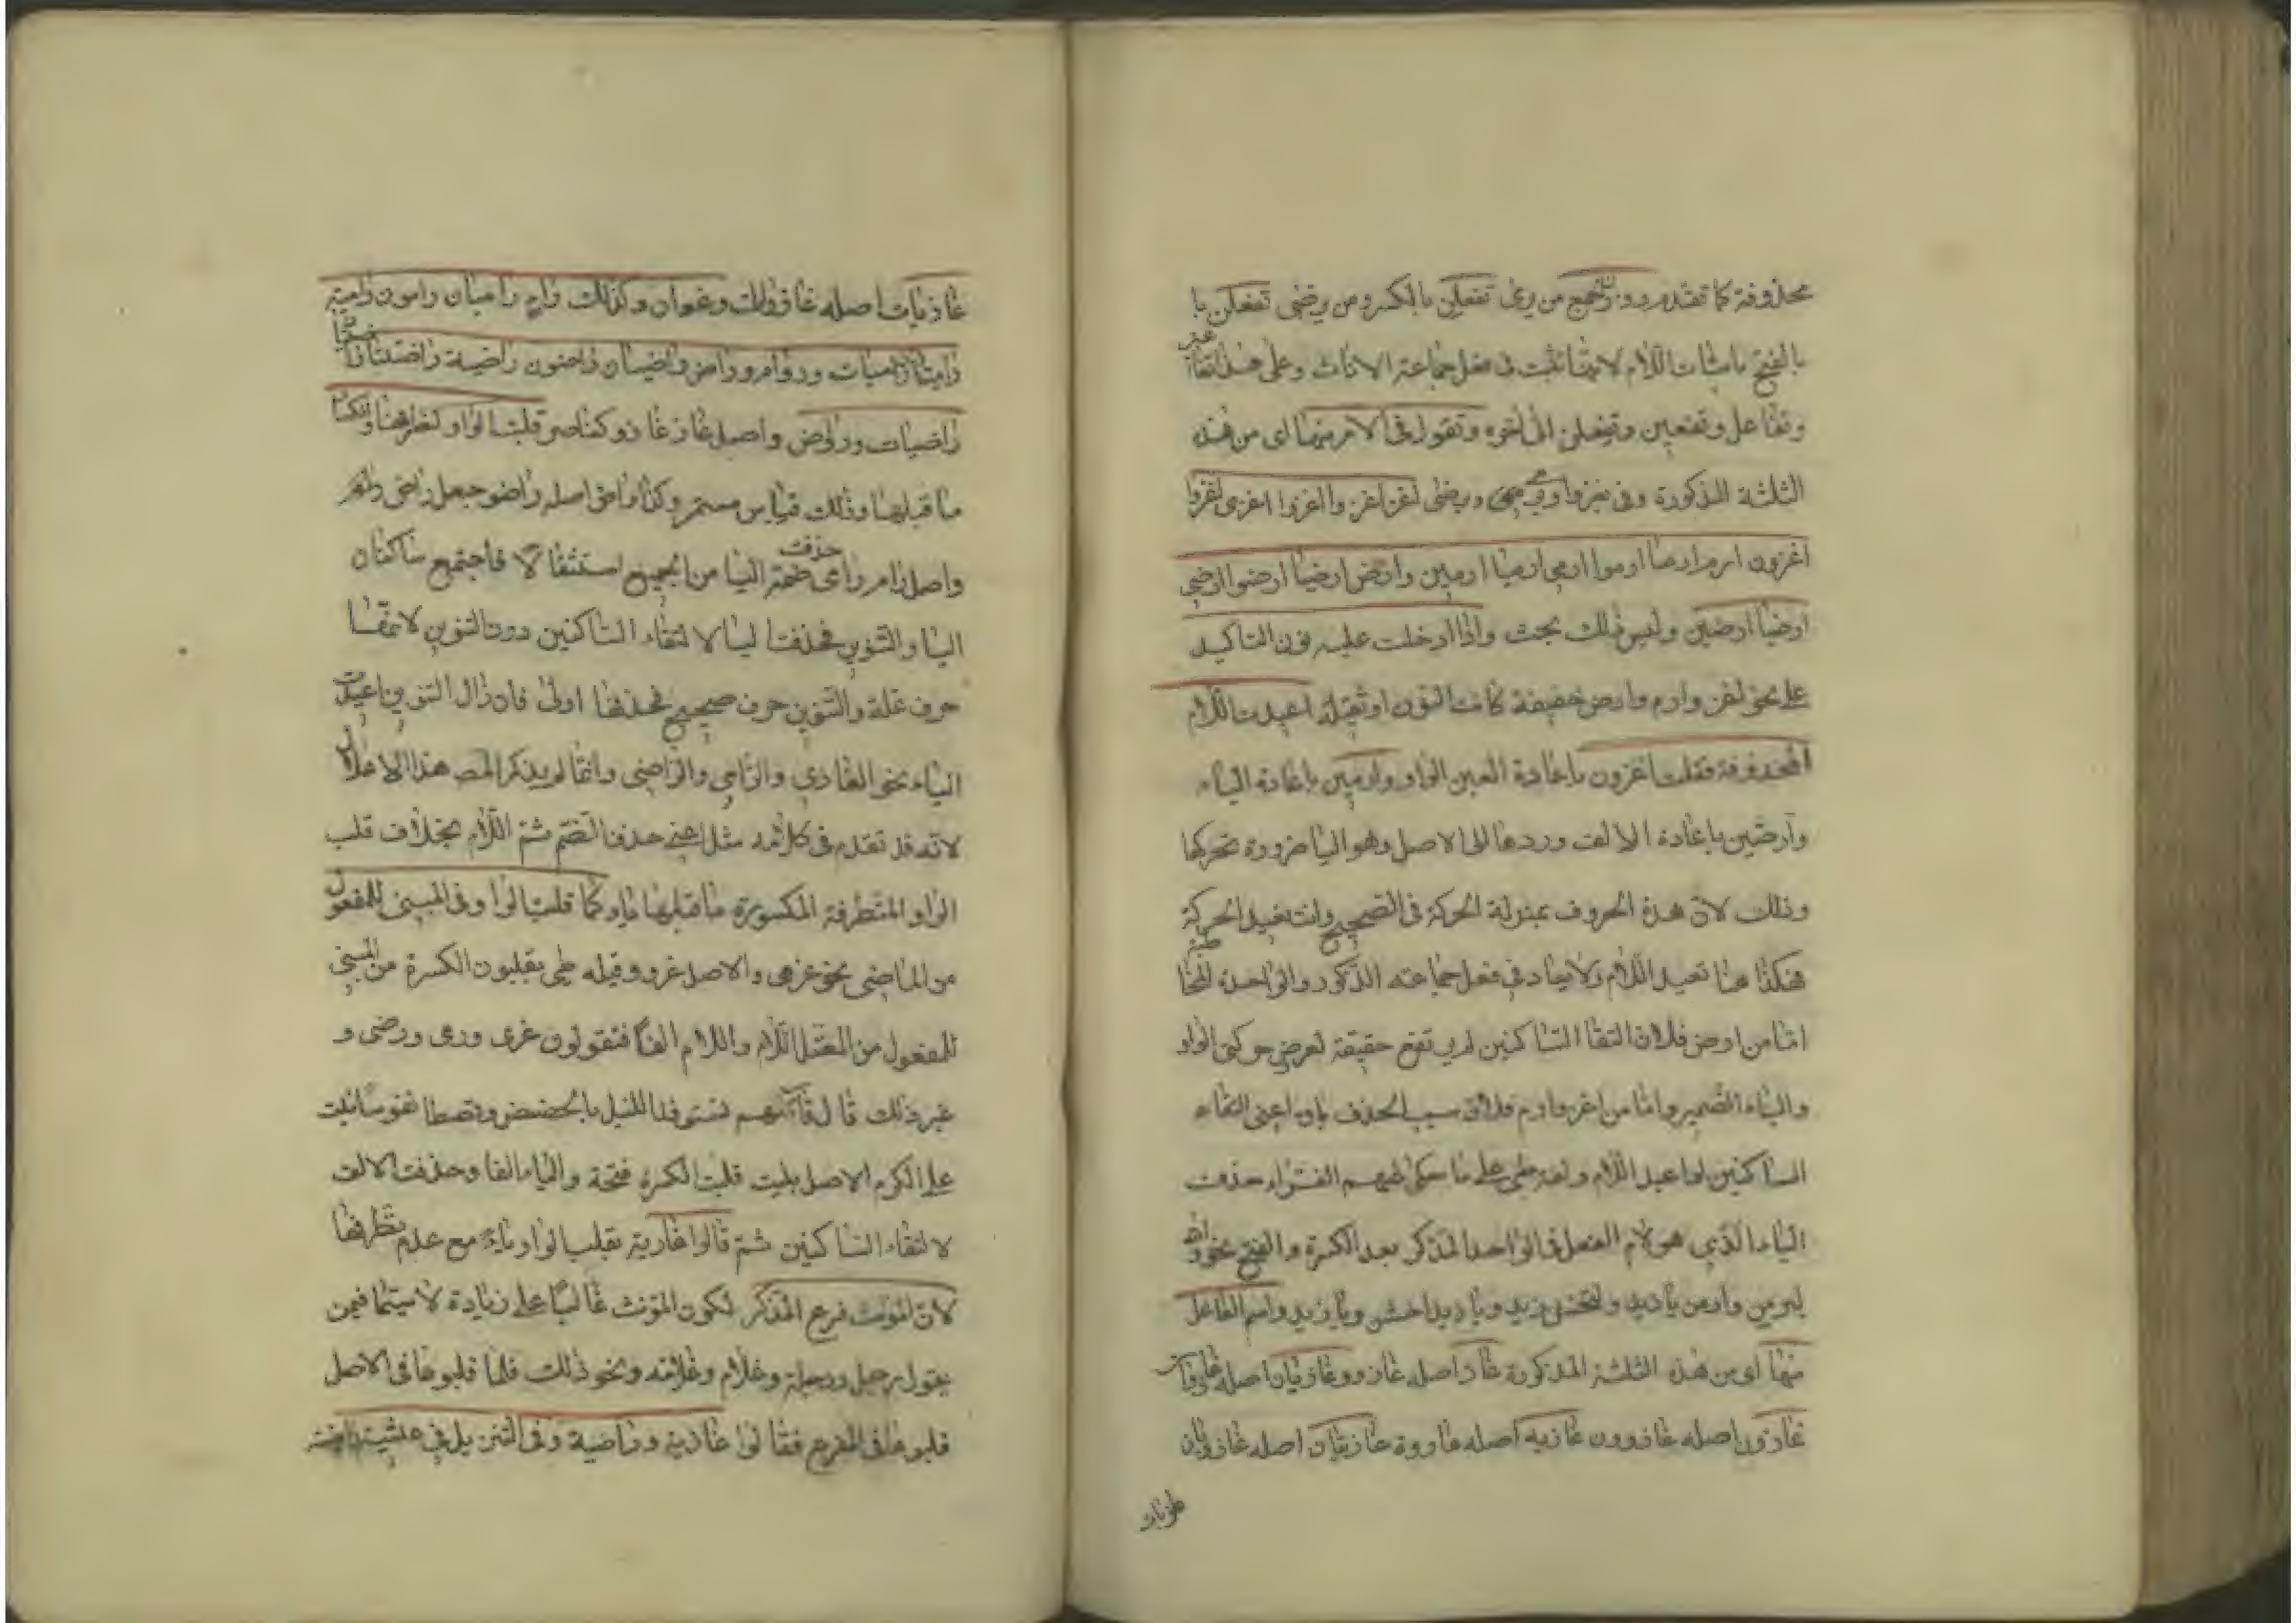 محذوفة كما تقدم ووزن الجمع من يرمى تفعلن بالكسر ومن يرضى تفعلن با
بالفتح باثبات اللام لانها تثبت فى فعل جماعة الاناث وعلى هذا تقا
وتفاعل وتفعين وتفعلن الى اخره وتقول فى الامر منها اى من هذه
الثلثة المذكورة وفى يغزوا ويرمى ويرضى اغز اغزوا اغزوا اغزى اغزوا
اغزون ارم ارميا ارموا ارمى ارميا ارمين وارض ارضيا ارضوا ارضى
ارضيا ارضين وليس فى ذلك بحث واذا ادخلت عليه نون التاكيد
على نحو اغز وارم وارض خفيفة كانت النون او ثقيلة اعيدت اللام
المحذوفة فقلت اغزون باعادة العين الواو وارمين باعادة الياء
وارضين باعادة الالف وردها الى الاصل وهو اليا ضرورة تحركها
وذلك لان هذه الحروف بمنزلة الحركة فى الصحيح وانت تعيد الحركة
فهكذا هنا تعيد اللام ولا يعاد فى فعل جماعته الذكور والواحدة المخا طبة
اما من ارض فلان التقا الساكنين لم يرتفع حقيقة لعرض حركتى الواو
والياء الضمير واما من اغز وارم فلان سبب الحذف باق اعنى التقاء
الساكنين لو اعيد اللام ولغة طى على ما حكى عنهم الفراء حذف
الياء الذى هو لام الفعل فى الواحد المذكر بعد الكسرة والفتح نحو والله
ليرمين وارمن يا زيد وليخشن زيد ويا زيد اخشن ويا زيد واسم الفاعل
منها اى من هذه الثلثة المذكورة غاز اصله غازو وغازيان اصله غازوان
غازون اصله غازوون غازيه اصله غازوة غازيتان اصله غازوتان
غازيات
غازيات اصله غازوات وغوان وكذلك رام راميان رامون رامية
راميتان راميات وروام وراض راضيان راضون راضية راضيتان
راضيات ورواض واصل غاز غازو كناصر قلبت الواو لتطرفها وانكسا
ما قبلها وذلك قياس مستمر وكذا راض اصله راضو جعل راضى
واصل رام رامى حذفت ضمة اليا من الجميع استثقالا فاجتمع ساكنان
اليا والتنوين فحذفت اليا لالتقاء الساكنين دون التنوين لانها
حرف علة والتنوين حرف صحيح فحذفها اولى فان زال التنوين اعيدت
الياء نحو الغازى والرامى والراضى وانما لم يذكر المص هذا الاعلال
لانه قد تقدم فى كلامه مثل اعنى حذف الضم ثم اللام بخلاف قلب
الواو المتطرفة المكسورة ما قبلها ياء كما قلبت الواو فى المبنى للمفعول
من الماضى نحو غزى والاصل غزو وقبيله طى يقلبون الكسرة من المبنى
للمفعول من المعتل اللام واللام الفا فتقولون غزى ورمى ورضى و
غير ذلك قال قائلهم نستوقد النبل بالحضيض ونصطا نفوسا بنت
على الكرم الاصل بنيت قلبت الكسرة فتحة والياء الفا وحذفت الالف
لالتقاء الساكنين ثم قالوا غازية بقلب الواو ياء مع عدم تطرفها
لان المونث فرع المذكر لكون المؤنث غالبا على زيادة لاسيما فيمن
يقول رجل ورجلة وغلام وغلامة ونحو ذلك فلما قلبوها فى الاصل
قلبوها فى الفرع فقالوا غازية وراضية وفى التنزيل فى عيشة راضية